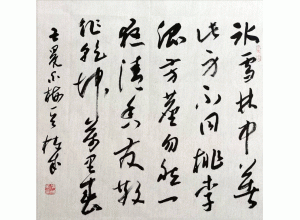 冰雪林中著
此身不同桃李
混芳塵忽然一
夜清香發散
作乾坤萬里春
王冕白梅一首